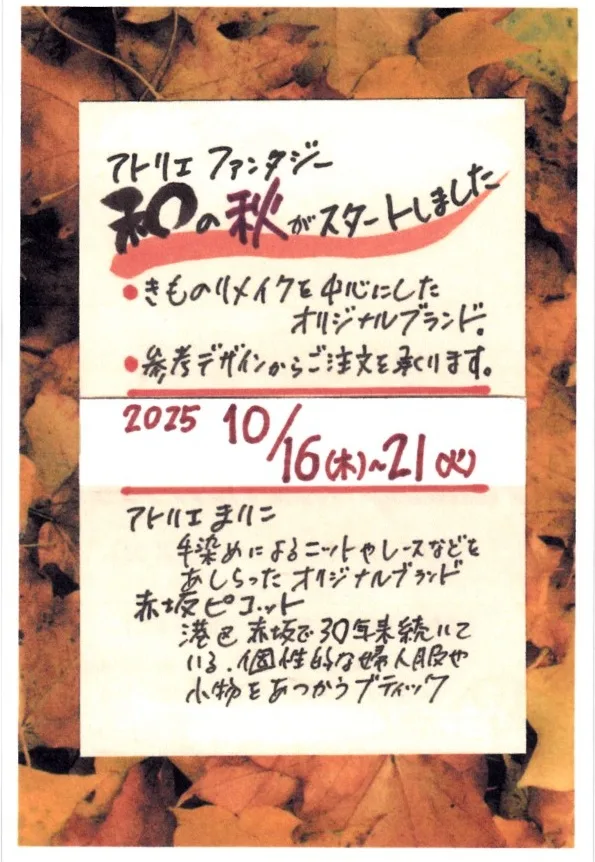 アトリエ ファンタジー
和の秋がスタートしました
●きものリメイクを中心にした
オリジナルブランド。
●参考デザインからご注文を承ります。
2025 10/16(木)~21(火)
アトリエ まりこ
手染めによるニットやレースなどを
あしらった オリジナルブランド
赤坂ピコット
港区 赤坂で30年来続いて
いる、個性的な婦人服や
小物をあつかうブティック